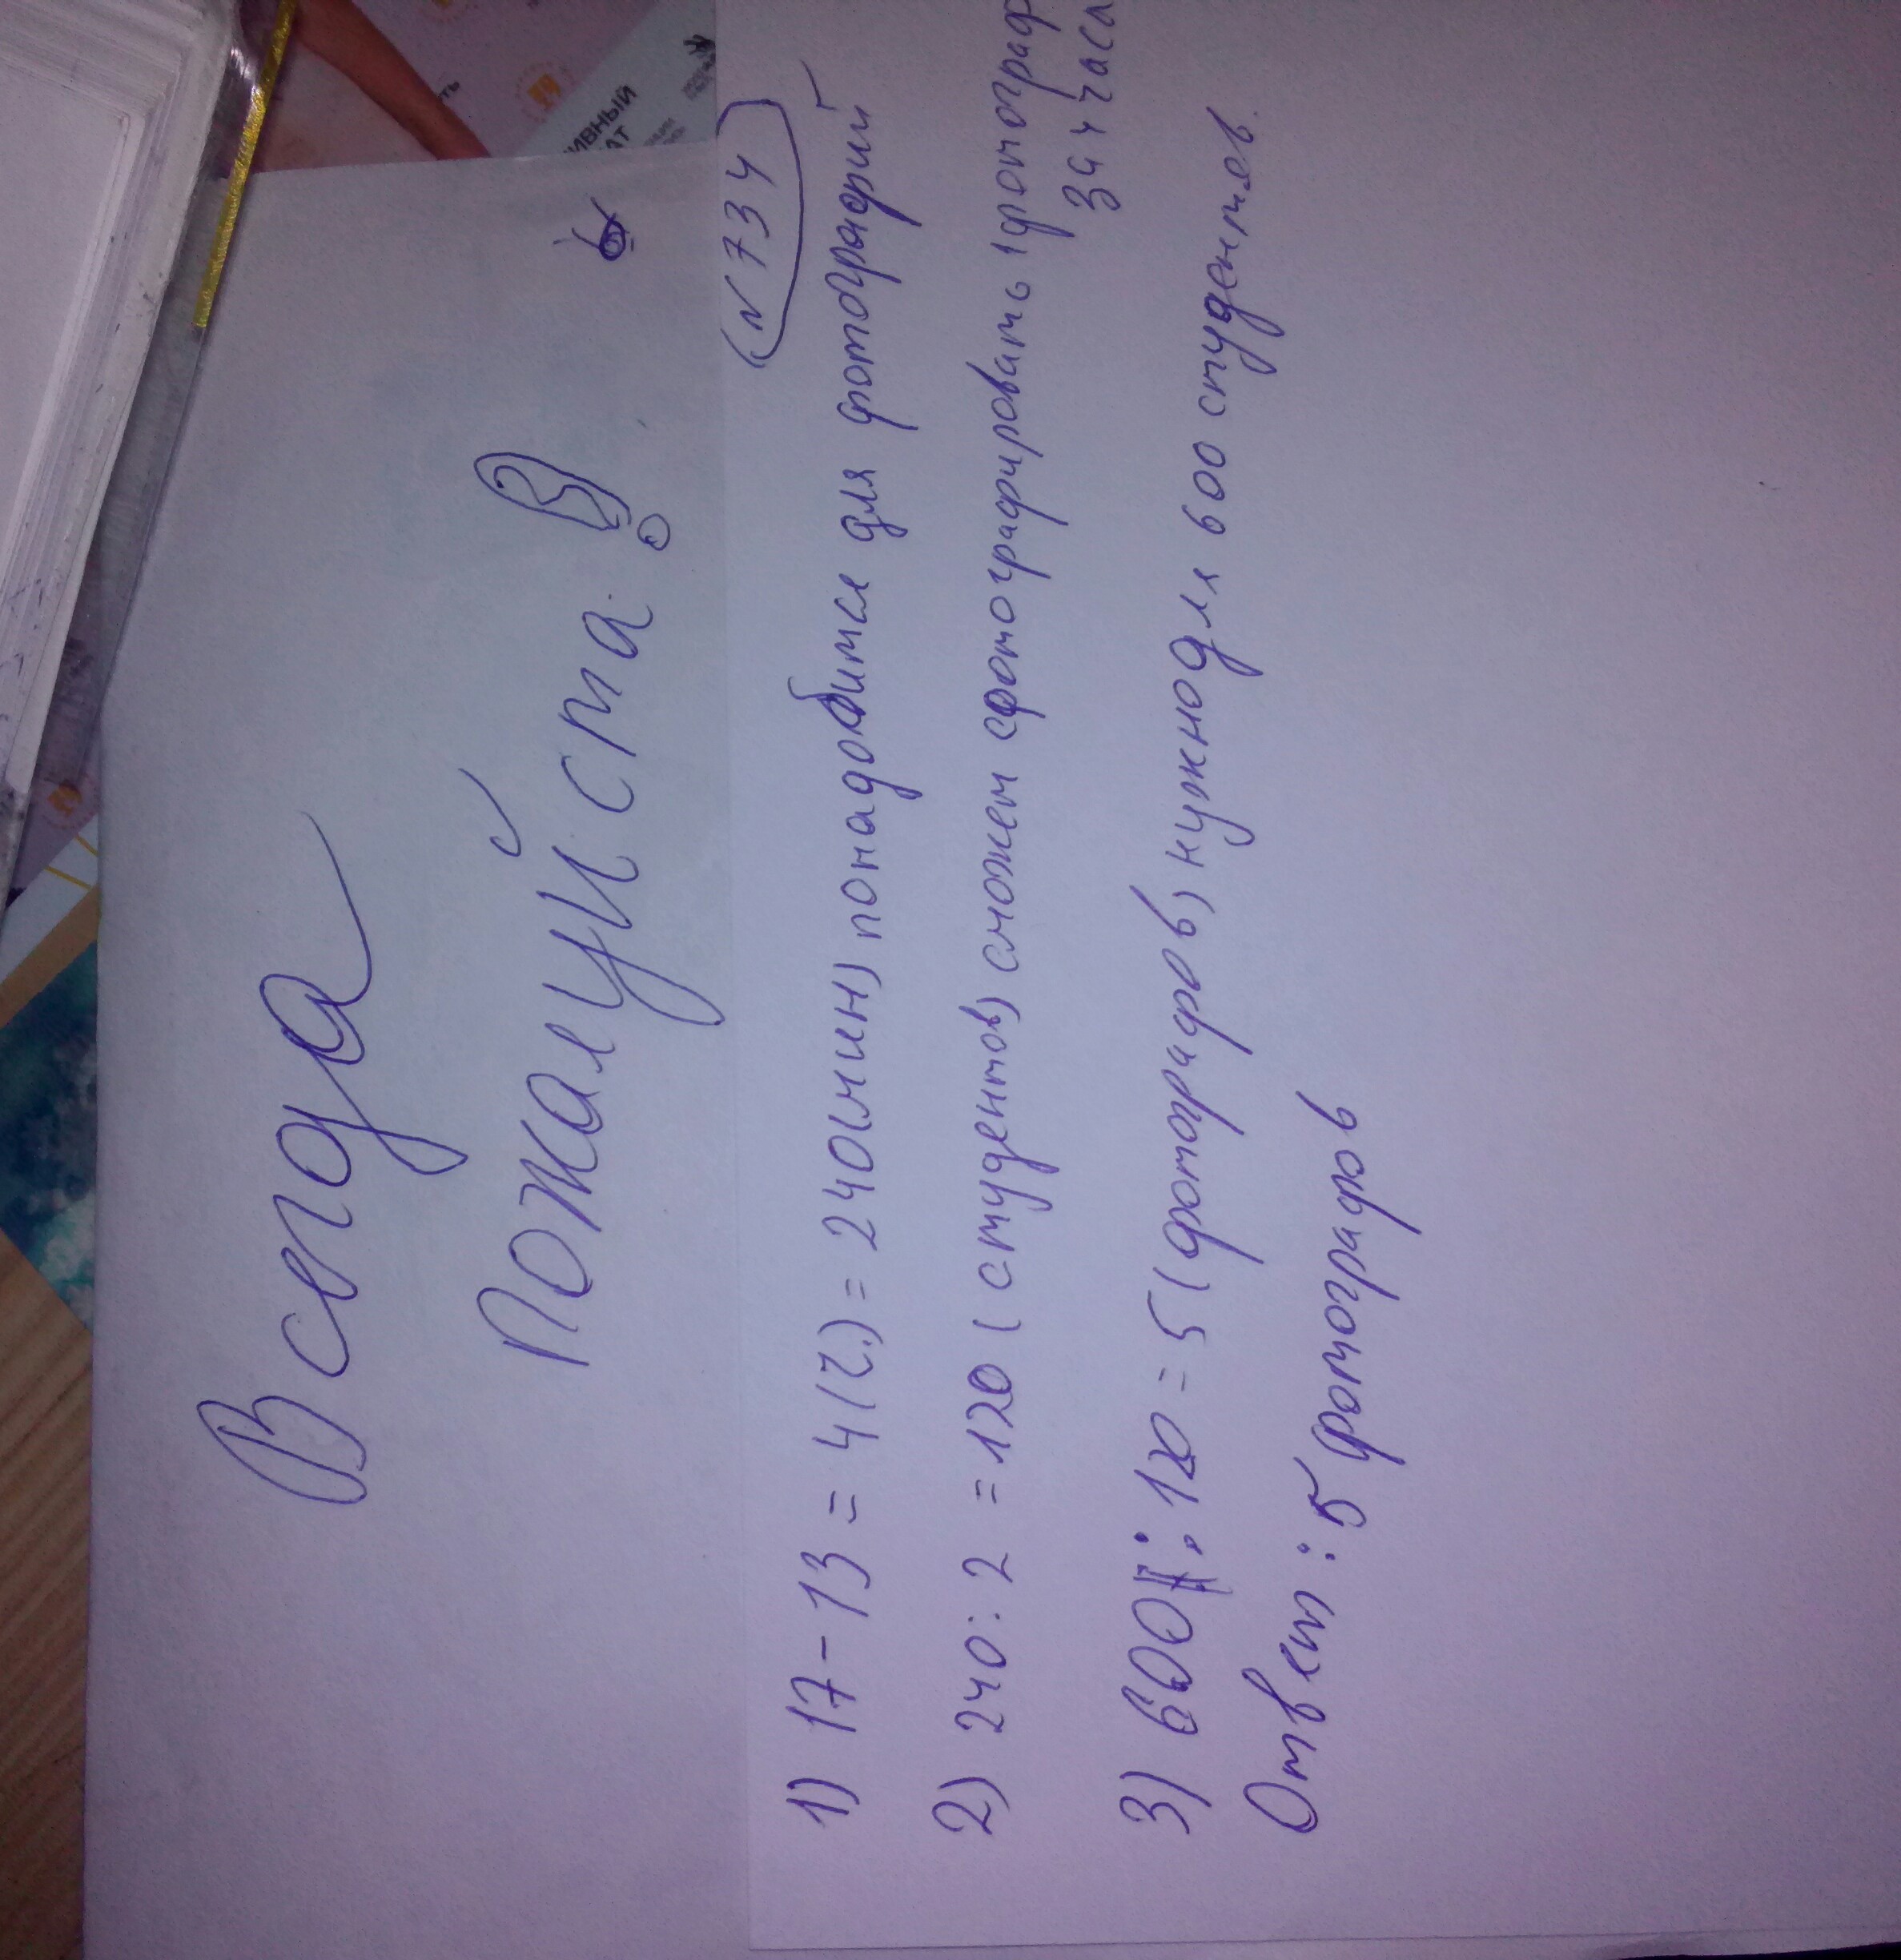 Всегда
Пожалуйста!
N 734
1) 17-13=4(ч.)=240(мин) понадобится для фотографий
2) 240:2=120 (студентов) сможет сфотографировать 1 фотограф
за 4 часа
3) 600:120=5 (фотографов) нужно для 600 студентов.
Ответ: 5 фотографов
ИВНЫЙ